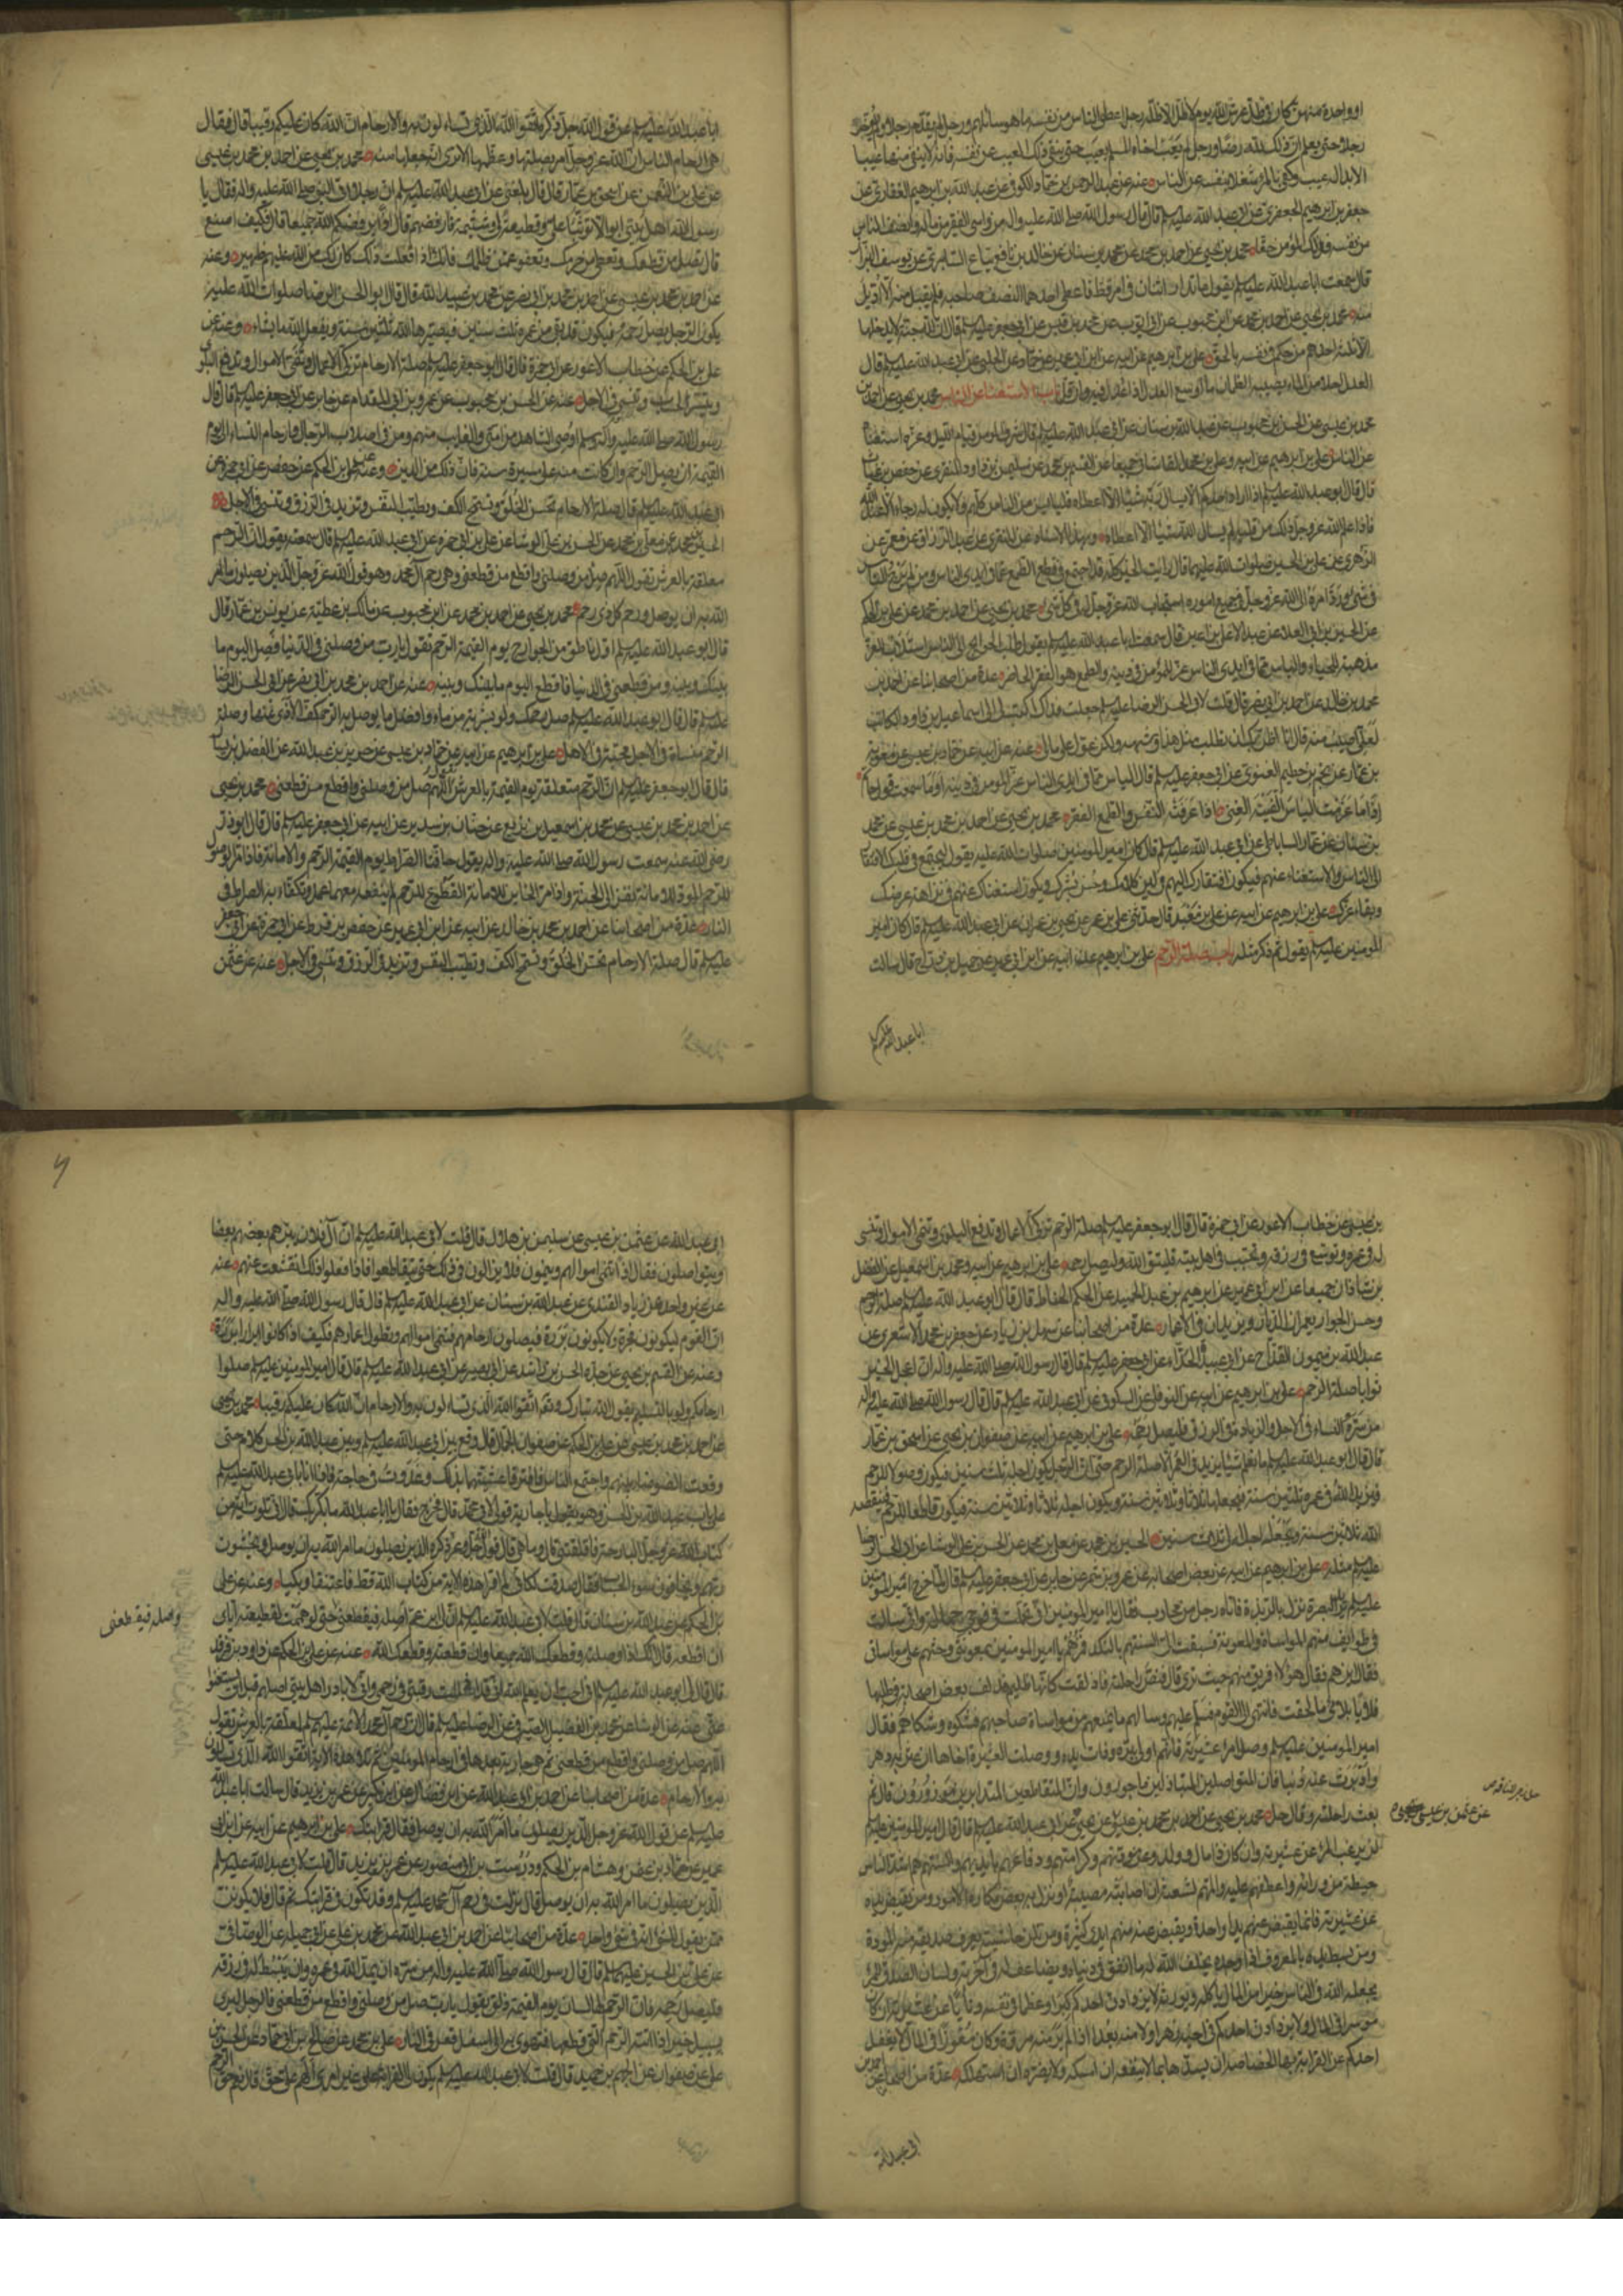 او واحدة منهن كان في ظل عرش الله يوم لا ظل الا ظله رجل اعطى الناس من نفسه ما هو سائلهم ورجل لم يقدم رجلا ولم يؤخر
رجلا حتى يعلم ان ذلك لله رضا ورجل لم يعب اخاه المسلم بعيب حتى ينفي ذلك العيب عن نفسه فانه لا ينفي منها عيبا
الا بدا له عيب وكفى بالمرء شغلا بنفسه عن الناس عنه عن عبد الرحمن بن حماد الكوفي عن عبد الله بن ابرهيم الغفاري عن
جعفر بن ابرهيم الجعفري عن ابي عبد الله عليه السلم قال قال رسول الله صلى الله عليه واله من واسى الفقير من ماله وانصف الناس
من نفسه فذلك المؤمن حقا محمد بن يحيى عن احمد بن محمد عن محمد بن سنان عن خالد بن نافع بياع السابري عن يوسف البزاز
قال سمعت ابا عبد الله عليه السلم يقول ما تدارا اثنان في امر قط فاعطى احدهما النصف صاحبه فلم يقبل منه الا اديل
منه محمد بن يحيى عن احمد بن محمد عن ابن محبوب عن ابي ايوب عن محمد بن قيس عن ابي جعفر عليه السلم قال ان لله جنة لا يدخلها
الا ثلثة احدهم من حكم في نفسه بالحق علي بن ابرهيم عن ابيه عن ابن ابي عمير عن حماد عن الحلبي عن ابي عبد الله عليه السلم قال
العدل احلى من الماء يصيبه الظمان ما اوسع العدل اذا عدل فيه وان قل باب الاستغناء عن الناس محمد بن يحيى عن احمد بن
محمد بن عيسى عن الحسن بن محبوب عن عبد الله بن سنان عن ابي عبد الله عليه السلم قال شرف المؤمن قيام الليل وعزه استغناه
عن الناس علي بن ابرهيم عن ابيه وعلي بن محمد القاساني جميعا عن القسم بن محمد عن سليمن بن داود المنقري عن حفص بن غياث
قال قال ابو عبد الله عليه السلم اذا اراد احدكم الا يسال ربه شيئا الا اعطاه فليايس من الناس كلهم ولا يكون له رجاء الا عند الله
فاذا علم الله عز وجل ذلك من قلبه لم يسال الله شيئا الا اعطاه وبهذا الاسناد عن المنقري عن عبد الرزاق عن معمر عن
الزهري عن علي بن الحسين صلوات الله عليهما قال رايت الخير كله قد اجتمع في قطع الطمع عما في ايدي الناس ومن لم يرج الناس
في شيء ورد امره الى الله عز وجل في جميع اموره استجاب الله عز وجل له في كل شيء محمد بن يحيى عن احمد بن محمد عن علي بن الحكم
عن الحسين بن ابي العلا عن عبد الاعلى بن اعين قال سمعت ابا عبد الله عليه السلم يقول طلب الحوايج الى الناس استلاب للعز
مذهبة للحياء والياس مما في ايدي الناس عز للمؤمن في دينه والطمع هو الفقر الحاضر عدة من اصحابنا عن احمد بن
محمد بن خالد عن احمد بن ابي نصر قال قلت لابي الحسن الرضا عليه السلم جعلت فداك اكتب لي الى اسماعيل بن داود الكاتب
لعلي اصيب منه قال انا اظن بك ان تطلب مثل هذا وشبهه ولكن عول على مالي عنه عن ابيه عن حماد بن عيسى عن معوية
بن عمار عن نجم بن حطيم الغنوي عن ابي جعفر عليه السلم قال الياس مما في ايدي الناس عز المؤمن في دينه او ما سمعت قول حاتم
اذا ما عزمت الياس الفيته الغنى اذا عرفته النفس والطمع الفقر محمد بن يحيى عن احمد بن محمد بن عيسى عن محمد
بن سنان عن عمار الساباطي عن ابي عبد الله عليه السلم قال كان امير المؤمنين صلوات الله عليه يقول ليجتمع في قلبك الافتقار
الى الناس والاستغناء عنهم فيكون افتقارك اليهم في لين كلامك وحسن بشرك ويكون استغناك عنهم في نزاهة عرضك
وبقاء عزك علي بن ابرهيم عن ابيه عن علي بن معبد قال حدثني علي بن عمر عن يحيى بن عمران عن ابي عبد الله عليه السلم قال كان امير
المؤمنين عليه السلم يقول ثم ذكر مثله باب صلة الرحم علي بن ابرهيم عن ابيه عن ابن ابي عمير عن جميل بن دراج قال سالت
ابا عبد الله عليه السلم
ابا عبد الله عليه السلم عن قول الله جل ذكره واتقوا الله الذي تساءلون به والارحام ان الله كان عليكم رقيبا قال فقال
هي ارحام الناس ان الله عز وجل امر بصلتها وعظمها الا ترى انه جعلها منه محمد بن يحيى عن احمد بن محمد بن عيسى
عن علي بن النعمن عن اسحق بن عمار قال قال بلغني عن ابي عبد الله عليه السلم ان رجلا اتى النبي صلى الله عليه واله فقال يا
رسول الله اهل بيتي ابوا الا توثبا علي وقطيعة لي وشتيمة فارفضهم قال اذا يرفضكم الله جميعا قال فكيف اصنع
قال تصل من قطعك وتعطي من حرمك وتعفو عمن ظلمك فانك اذا فعلت ذلك كان لك من الله عليهم ظهير وعنه
عن احمد بن محمد بن عيسى عن احمد بن محمد بن ابي نصر عن محمد بن عبيد الله قال قال ابو الحسن الرضا صلوات الله عليه
يكون الرجل يصل رحمه فيكون قد بقي من عمره ثلث سنين فيصيرها الله ثلثين سنة ويفعل الله ما يشاء وعنه عن
علي بن الحكم عن خطاب الاعور عن ابي حمزة قال قال ابو جعفر عليه السلم صلة الارحام تزكي الاعمال وتنمي الاموال وتدفع البلوى
وتيسر الحساب وتنسئ في الاجل عنه عن الحسن بن محبوب عن عمرو بن ابي المقدام عن جابر عن ابي جعفر عليه السلم قال قال
رسول الله صلى الله عليه واله وسلم اوصي الشاهد من امتي والغايب منهم ومن في اصلاب الرجال وارحام النساء الى يوم
القيمة ان يصل الرحم وان كانت منه على مسيرة سنة فان ذلك من الدين وعنه عن علي بن الحكم عن حفص عن ابي حمزة عن
ابي عبد الله عليه السلم قال صلة الارحام تحسن الخلق وتسمح الكف وتطيب النفس وتزيد في الرزق وتنسئ في الاجل
الحسين بن محمد عن معلى بن محمد عن الحسن بن علي الوشا عن علي بن ابي حمزة عن ابي عبد الله عليه السلم قال سمعته يقول ان الرحم
معلقة بالعرش تقول اللهم صل من وصلني واقطع من قطعني وهي رحم آل محمد وهو قول الله عز وجل الذين يصلون ما امر
الله به ان يوصل ورحم كل ذي رحم محمد بن يحيى عن احمد بن محمد عن ابن محبوب عن مالك بن عطية عن يونس بن عمار قال
قال ابو عبد الله عليه السلم اول ناطق من الجوارح يوم القيمة الرحم تقول يا رب من وصلني في الدنيا فصل اليوم ما
بينك وبينه ومن قطعني في الدنيا فاقطع اليوم ما بينك وبينه عنه عن احمد بن محمد بن ابي نصر عن ابي الحسن الرضا
عليه السلم قال قال ابو عبد الله عليه السلم صل رحمك ولو بشربة من ماء وافضل ما يوصل به الرحم كف الاذى عنها وصلة
الرحم منساة في الاجل محببة في الاهل علي بن ابرهيم عن ابيه عن حماد بن عيسى عن حريز بن عبد الله عن الفضيل بن يسار
قال قال ابو جعفر عليه السلم ان الرحم متعلقة يوم القيمة بالعرش تقول اللهم صل من وصلني واقطع من قطعني محمد بن يحيى
عن احمد بن محمد بن عيسى عن محمد بن اسمعيل بن بزيع عن حنان بن سدير عن ابيه عن ابي جعفر عليه السلم قال قال ابو ذر
رضي الله عنه سمعت رسول الله صلى الله عليه واله يقول حافتا الصراط يوم القيمة الرحم والامانة فاذا مر الوصول
للرحم المودي للامانة نفذ الى الجنة واذا مر الخاين للامانة القطوع للرحم لم ينفعه معهما عمل وتكفا به الصراط في
النار عدة من اصحابنا عن احمد بن محمد بن خالد عن ابيه عن ابن ابي عمير عن حفص بن قرط عن ابي حمزة عن ابي جعفر
عليه السلم قال صلة الارحام تحسن الخلق وتسمح الكف وتطيب النفس وتزيد في الرزق وتنسئ في الاجل عنه عن عثمن
بن عيسى عن خطاب الاعور عن ابي حمزة قال قال ابو جعفر عليه السلم صلة الرحم تزكي الاعمال وتدفع البلوى وتنمي الاموال وتنسئ
له في عمره وتوسع في رزقه وتحبب في اهل بيته فليتق الله وليصل رحمه علي بن ابرهيم عن ابيه ومحمد بن اسمعيل عن الفضل
بن شاذان جميعا عن ابن ابي عمير عن ابرهيم بن عبد الحميد عن الحكم الحناط قال قال ابو عبد الله عليه السلم صلة الرحم
وحسن الجوار يعمران الديار ويزيدان في الاعمار عدة من اصحابنا عن سهل بن زياد عن جعفر بن محمد الاشعري عن
عبد الله بن ميمون القداح عن ابي عبيدة الحذاء عن ابي جعفر عليه السلم قال قال رسول الله صلى الله عليه واله ان اعجل الخير
ثوابا صلة الرحم علي بن ابرهيم عن ابيه عن النوفلي عن السكوني عن ابي عبد الله عليه السلم قال قال رسول الله صلى الله عليه واله
من سره النساء في الاجل والزيادة في الرزق فليصل رحمه علي بن ابرهيم عن ابيه عن صفوان بن يحيى عن اسحق بن عمار
قال قال ابو عبد الله عليه السلم ما نعلم شيئا يزيد في العمر الا صلة الرحم حتى ان الرجل يكون اجله ثلث سنين فيكون وصولا للرحم
فيزيد الله في عمره ثلثين سنة فيجعلها ثلاثا وثلاثين سنة ويكون اجله ثلاثا وثلاثين سنة فيكون قاطعا للرحم فينقصه
الله ثلاثين سنة ويجعل اجله الى ثلاث سنين الحسين بن محمد عن معلى بن محمد عن الحسن بن علي الوشا عن ابي الحسن الرضا
عليه السلم مثله علي بن ابرهيم عن ابيه عن بعض اصحابه عن عمرو بن شمر عن جابر عن ابي جعفر عليه السلم قال لما خرج امير المؤمنين
عليه السلم يريد البصرة نزل بالربذة فاتاه رجل من محارب فقال يا امير المؤمنين اني تحملت في قومي حمالة واني سالت
في طوايف منهم المواساة والمعونة فسبقت الي السنتهم بالنكد فمرهم يا امير المؤمنين بمعونتي وحثهم على مواساتي
فقال اين هم فقال هؤلاء فريق منهم حيث ترى قال فنص راحلته فادلفت كانها ظليم فدلف بعض اصحابه في طلبها
فلايا بلاي ما لحقت فانتهى الى القوم فسلم عليهم وسالهم ما يمنعهم من مواساة صاحبهم فشكوه وشكاهم فقال
امير المؤمنين عليه السلم وصل امرؤ عشيرته فانهم اولى ببره وذات يده ووصلت العشيرة اخاها ان عثر به دهر
وادبرت عنه دنيا فان المتواصلين المتباذلين ماجورون وان المتقاطعين المتدابرين موزورون قال ثم
بعث راحلته وقال حل محمد بن يحيى عن احمد بن محمد بن عيسى عن يحيى عن ابي عبد الله عليه السلم قال قال امير المؤمنين عليه السلم
عن عثمن بن عيسى
لن يرغب المرء عن عشيرته وان كان ذا مال وولد وعن مودتهم وكرامتهم ودفاعهم بايديهم والسنتهم هم اشد الناس
حيطة من ورائه واعطفهم عليه والمهم لشعثه ان اصابته مصيبة او نزل به بعض مكاره الامور ومن يقبض يده
عن عشيرته فانما يقبض عنهم يدا واحدة ويقبض عنه منهم ايدي كثيرة ومن يلن حاشيته يعرف صديقه منه المودة
ومن بسط يده بالمعروف اذا وجده يخلف الله له ما انفق في دنياه ويضاعف له في آخرته ولسان الصدق للمرء
يجعله الله في الناس خيرا من المال ياكله ويورثه لا يزدادن احدكم كبرا وعظما في نفسه ونايا عن عشيرته ان كان
موسرا في المال ولا يزدادن احدكم في اخيه زهدا ولا منه بعدا اذا لم ير منه مروة وكان معوزا في المال لا يغفل
احدكم عن القرابة بها الخصاصة ان يسدها بما لا ينفعه ان امسكه ولا يضره ان استهلكه عدة من اصحابنا عن احمد بن
ابي عبد الله
ابي عبد الله عن عثمن بن عيسى عن سليمن بن هلال قال قلت لابي عبد الله عليه السلم ان آل فلان يبر بعضهم بعضا
ويتواصلون فقال اذا تنمي اموالهم وينمون فلا يزالون في ذلك حتى يتقاطعوا فاذا فعلوا ذلك انقشعت عنهم عنه
عن غير واحد عن زياد القندي عن عبد الله بن سنان عن ابي عبد الله عليه السلم قال قال رسول الله صلى الله عليه واله
ان القوم ليكونون فجرة ولا يكونون بررة فيصلون ارحامهم فتنمي اموالهم وتطول اعمارهم فكيف اذا كانوا ابرارا بررة
وعنه عن القسم بن يحيى عن جده الحسن بن راشد عن ابي بصير عن ابي عبد الله عليه السلم قال قال امير المؤمنين عليه السلم صلوا
ارحامكم ولو بالتسليم يقول الله تبارك وتعالى اتقوا الله الذي تساءلون به والارحام ان الله كان عليكم رقيبا محمد بن يحيى
عن احمد بن محمد بن عيسى عن علي بن الحكم عن صفوان الجمال قال وقع بين ابي عبد الله عليه السلم وبين عبد الله بن الحسن كلام حتى
وقعت الضوضاء بينهم واجتمع الناس فافترقا عشيتهما بذلك وغدوت في حاجة فاذا انا بابي عبد الله عليه السلم
على باب عبد الله بن الحسن وهو يقول يا جارية قولي لابي محمد قال فخرج فقال يا ابا عبد الله ما بكر بك قال اني تلوت آية من
كتاب الله عز وجل البارحة فاقلقتني قال وما هي قال قول الله جل وعز ذكره الذين يصلون ما امر الله به ان يوصل ويخشون
ربهم ويخافون سوء الحساب فقال صدقت لكاني لم اقرا هذه الاية من كتاب الله قط فاعتنقا وبكيا وعنه عن علي
بن الحكم عن عبد الله بن سنان قال قلت لابي عبد الله عليه السلم ان لي ابن عم اصله فيقطعني حتى لقد هممت لقطيعته اياي
واصله فيقطعني
ان اقطعه قال انك اذا وصلته وقطعك وصلكما الله جميعا وان قطعته وقطعك قطعكما الله عنه عن علي بن الحكم عن داود بن فرقد
قال قال لي ابو عبد الله عليه السلم اني احب ان يعلم الله اني قد اذللت رقبتي في رحمي واني لابادر اهل بيتي اصلهم قبل ان يستغنوا
عني عنه عن الوشا عن محمد بن الفضيل الصيرفي عن الرضا عليه السلم قال ان رحم آل محمد الائمة عليهم السلم لمعلقة بالعرش تقول
اللهم صل من وصلني واقطع من قطعني ثم هي جارية بعدها في ارحام المؤمنين ثم تلا هذه الاية اتقوا الله الذي تساءلون
به والارحام عدة من اصحابنا عن احمد بن ابي عبد الله عن ابن فضال عن ابن بكير عن عمر بن يزيد قال سالت ابا عبد الله
عليه السلم عن قول الله عز وجل الذين يصلون ما امر الله به ان يوصل فقال قرابتك علي بن ابرهيم عن ابيه عن ابن ابي
عمير عن حماد بن عثمن وهشام بن الحكم ودرست بن ابي منصور عن عمر بن يزيد قال قلت لابي عبد الله عليه السلم
الذين يصلون ما امر الله به ان يوصل قال نزلت في رحم آل محمد عليه السلم وقد تكون في قرابتك ثم قال فلا تكونن
ممن يقول للشيء انه في شيء واحد عدة من اصحابنا عن احمد بن ابي عبد الله عن محمد بن علي عن ابي جميلة عن الوصافي
عن علي بن الحسين عليهما السلم قال قال رسول الله صلى الله عليه واله من سره ان يمد الله في عمره وان يبسط له في رزقه
فليصل رحمه فان الرحم لها لسان يوم القيمة ذلق يقول يا رب صل من وصلني واقطع من قطعني فالرجل ليرى
بسبيل خير اذا اتته الرحم التي قطعها فتهوي به الى اسفل قعر في النار علي بن محمد عن صالح بن ابي حماد عن الحسن بن
علي عن صفوان عن الجهم بن حميد قال قلت لابي عبد الله عليه السلم يكون لي القرابة على غير امري الهم علي حق قال نعم حق الرحم